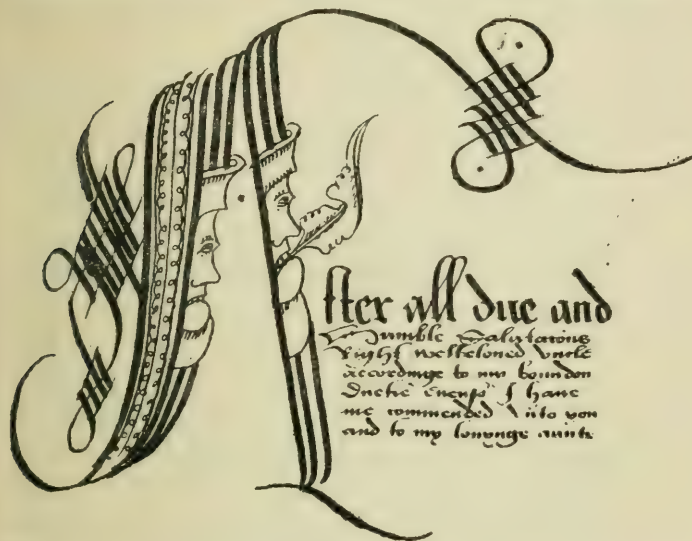 After all due and
Humble Salutations
Right welbeloued vncle
accordinge to my bounden
Duetie I haue
me commended vnto you
and to my louynge aunte